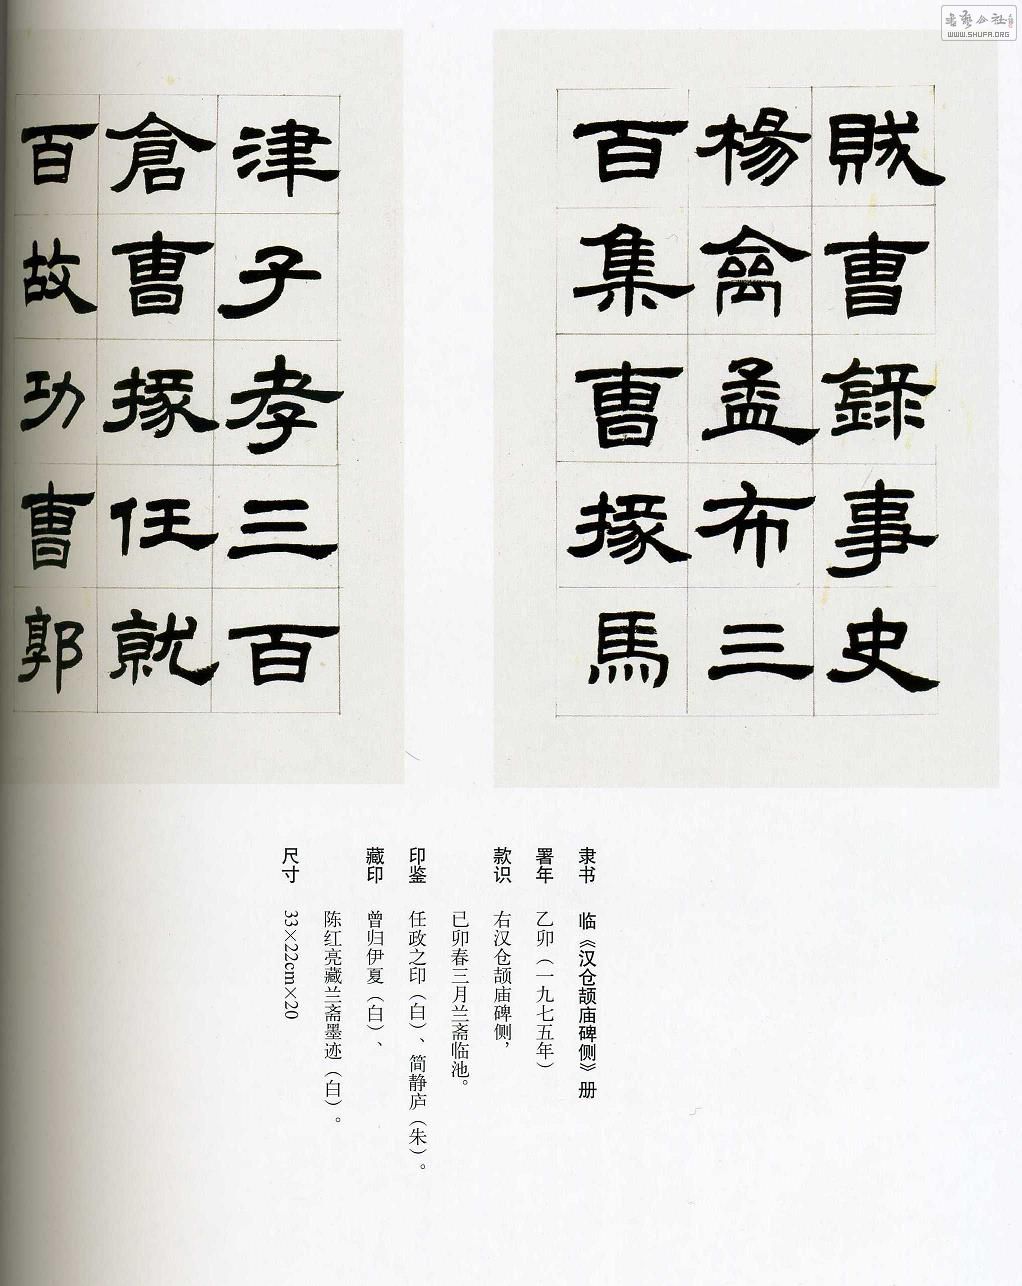 書藝公社
WWW.SHUFA.ORG
賊曹録事史
楊禽孟布三
百集曹掾馬
津子孝三百
倉曹掾任就
百故功曹郭
隶书 临《汉仓颉庙碑侧》册
署年 乙卯（一九七五年）
款识 右汉仓颉庙碑侧，
已卯春三月兰斋临池。
印鉴 任政之印（白）、简静庐（朱）。
藏印 曾归伊夏（白）、
陈红亮藏兰斋墨迹（白）。
尺寸 33×22cm×20